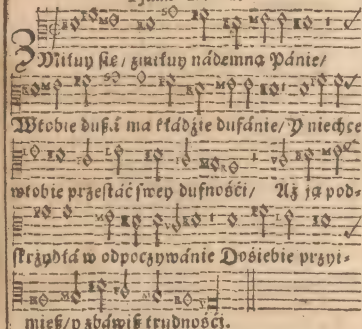 ZMiłuy się / zmiłuy nádemną Pánie/
Wtobie dußá ma kłádzie dufánie/ Y niechcę
wtobie przestáć swey dufnośći/ Aż ją pod-
skrzydłá w odpoczywánie Dośiebie przyi-
mieß/ y zbáwiß trudnośći.